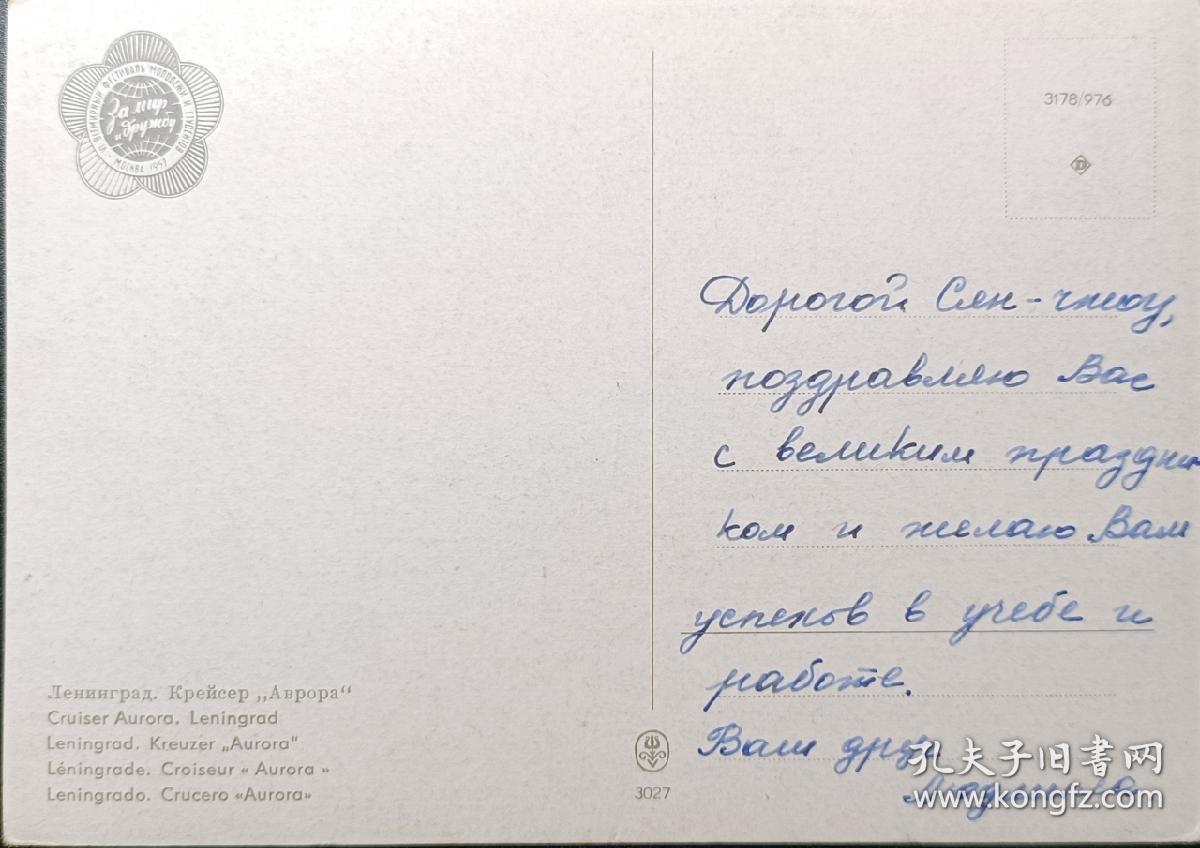 VI ВСЕМИРНЫЙ ФЕСТИВАЛЬ МОЛОДЕЖИ И СТУДЕНТОВ
За мир
и дружбу
МОСКВА 1957
3178/976
Дорогой Сян-чжоу,
поздравляю Вас
с великим праздни
ком и желаю Вам
успехов в учебе и
работе.
Ваш друг
Людмила
Ленинград. Крейсер „Аврора“
Cruiser Aurora. Leningrad
Leningrad. Kreuzer „Aurora"
Léningrade. Croiseur « Aurora »
Leningrado. Crucero «Aurora»
3027
孔夫子旧书网
www.kongfz.com